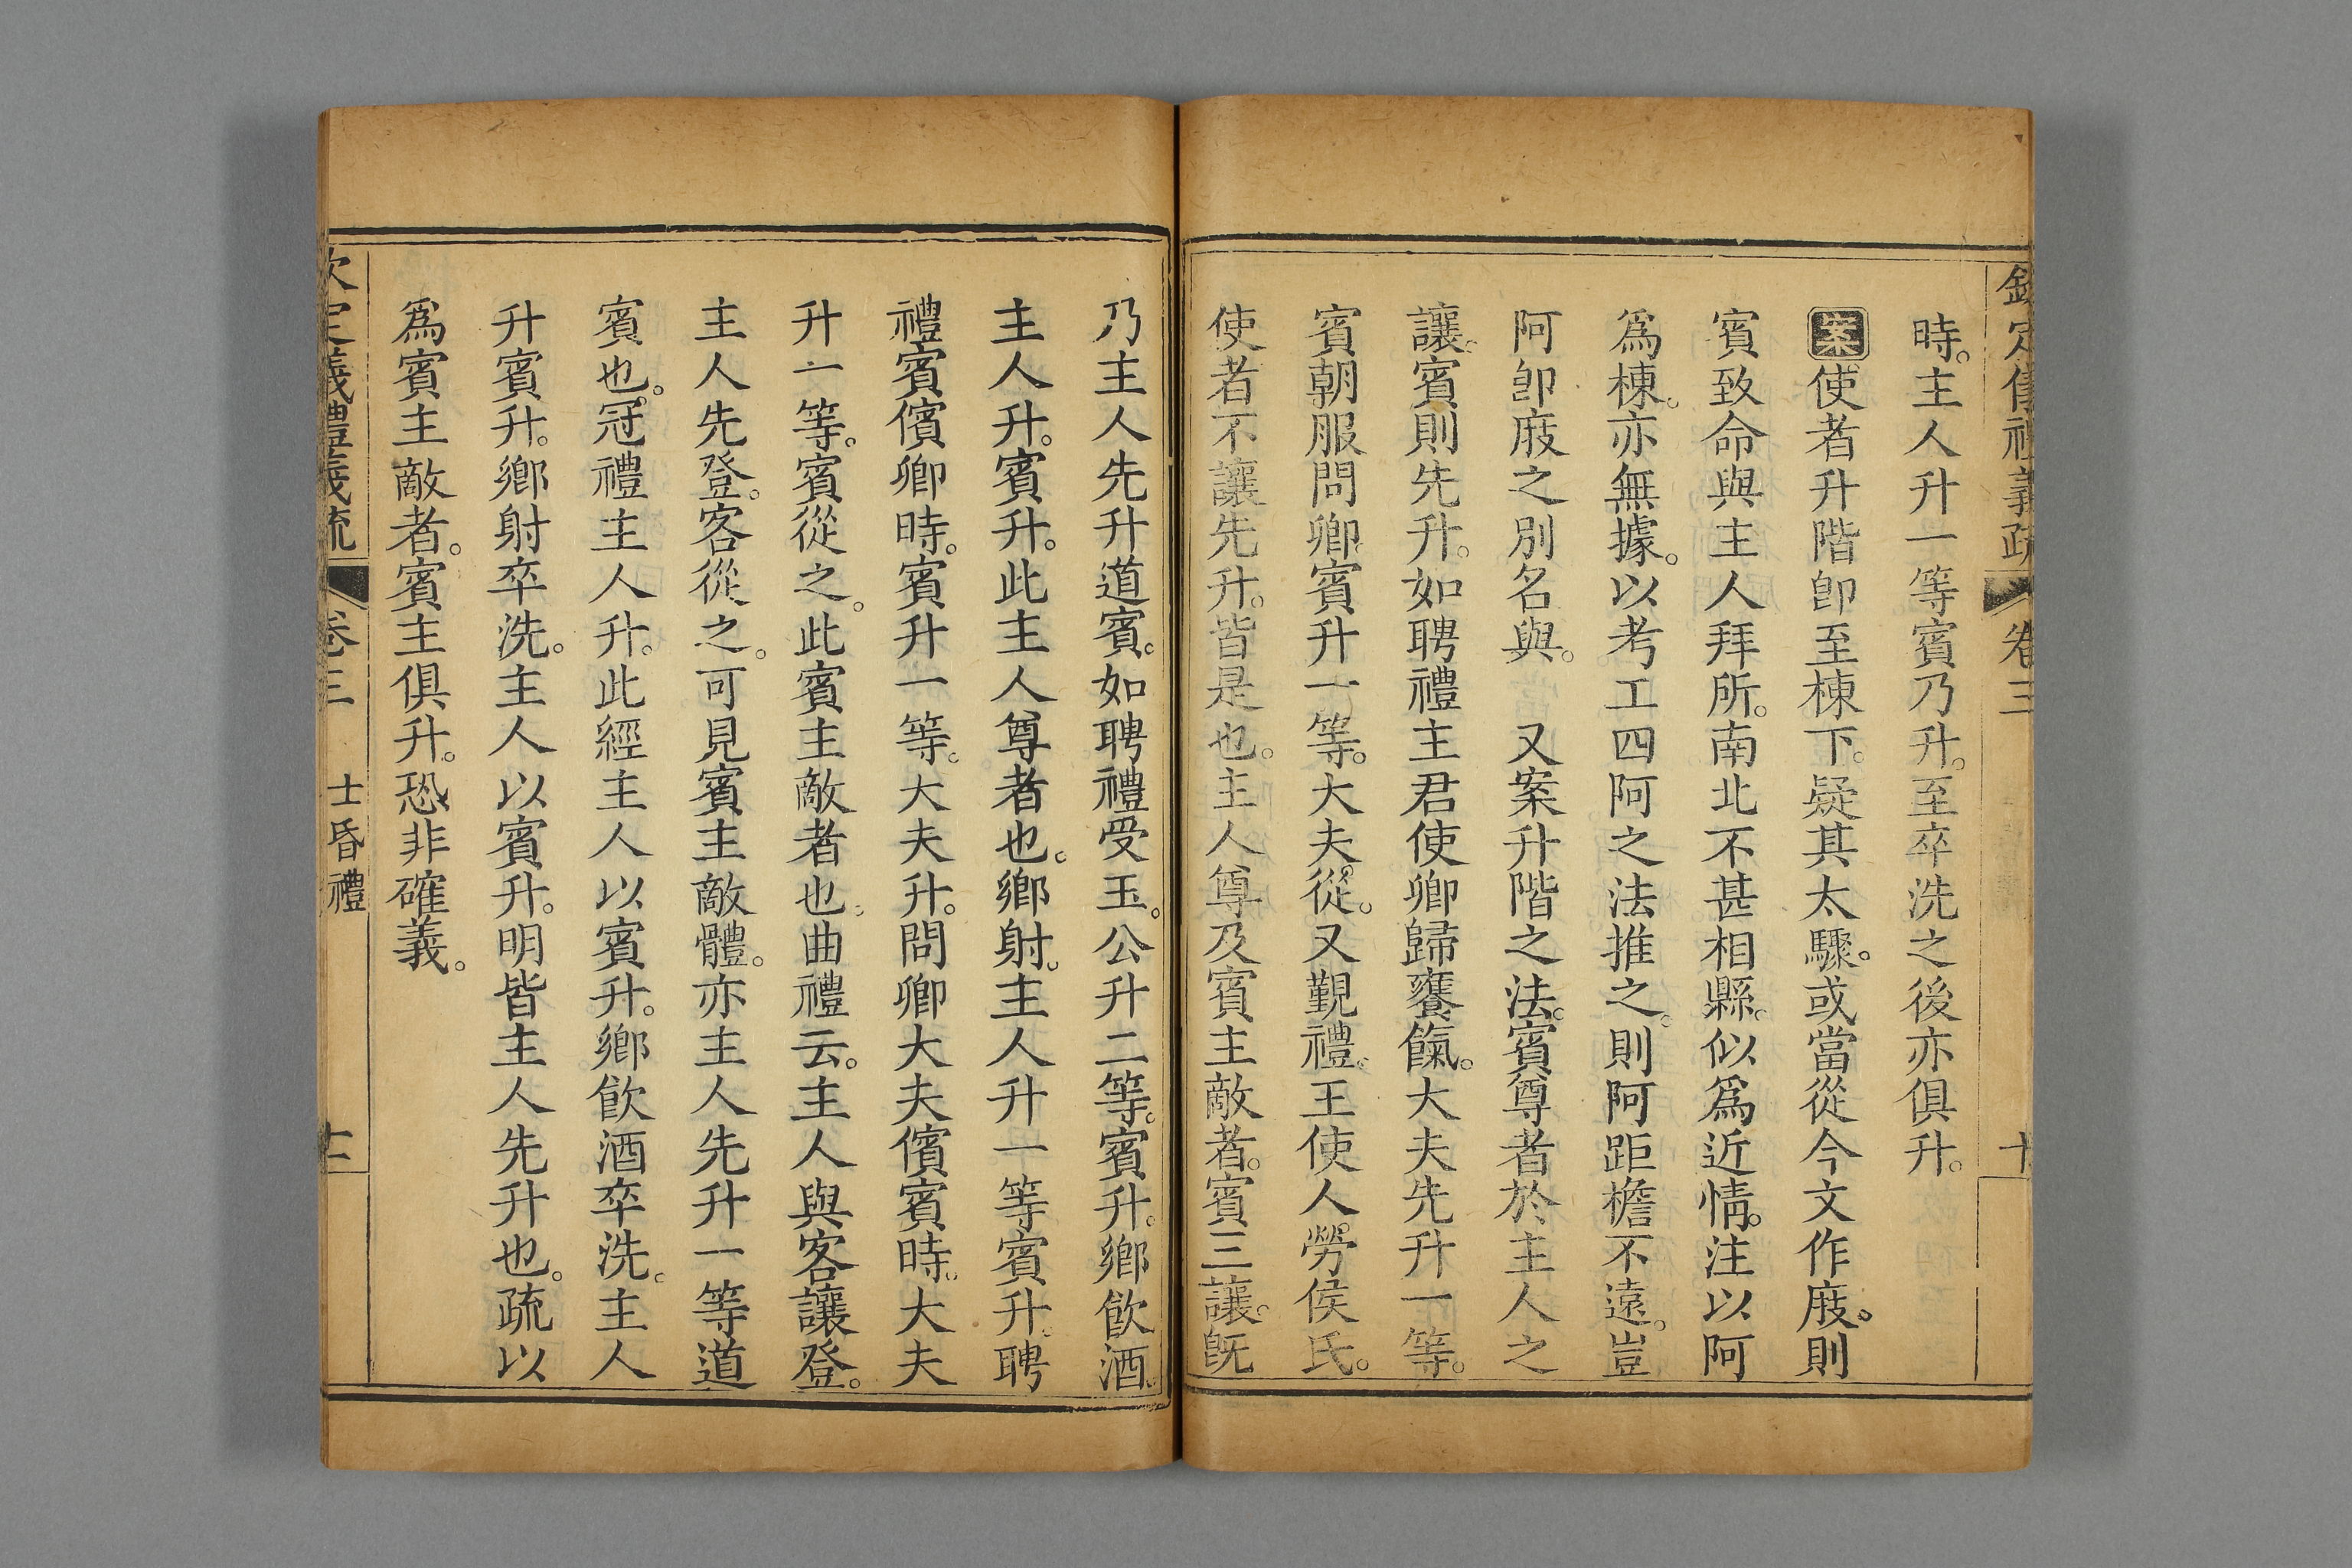 欽定儀禮義疏 卷三 十
時。主人升一等賓乃升。至卒洗之後亦俱升。
案使者升階卽至棟下。疑其太驟。或當從今文作庪。則
賓致命與主人拜所。南北不甚相縣。似爲近情。注以阿
爲棟。亦無據。以考工四阿之法推之。則阿距檐不遠。豈
阿卽庪之別名與。 又案升階之法。賓尊者於主人之
讓。賓則先升。如聘禮主君使卿歸饔餼。大夫先升一等。
賓朝服問卿。賓升一等。大夫從。又覲禮。王使人勞侯氏。
使者不讓先升。皆是也。主人尊及賓主敵者。賓三讓。旣
乃主人先升道賓。如聘禮受玉。公升二等。賓升。鄉飮酒。
主人升。賓升。此主人尊者也。鄉射。主人升一等賓升。聘
禮賓儐卿時。賓升一等。大夫升。問卿大夫儐賓時。大夫
升一等。賓從之。此賓主敵者也。曲禮云。主人與客讓登。
主人先登。客從之。可見賓主敵體。亦主人先升一等道
賓也。冠禮主人升。此經主人以賓升。鄉飮酒卒洗。主人
升賓升。鄉射卒洗。主人以賓升。明皆主人先升也。疏以
爲賓主敵者。賓主俱升。恐非確義。
欽定義禮義疏 卷三 士昏禮 十一